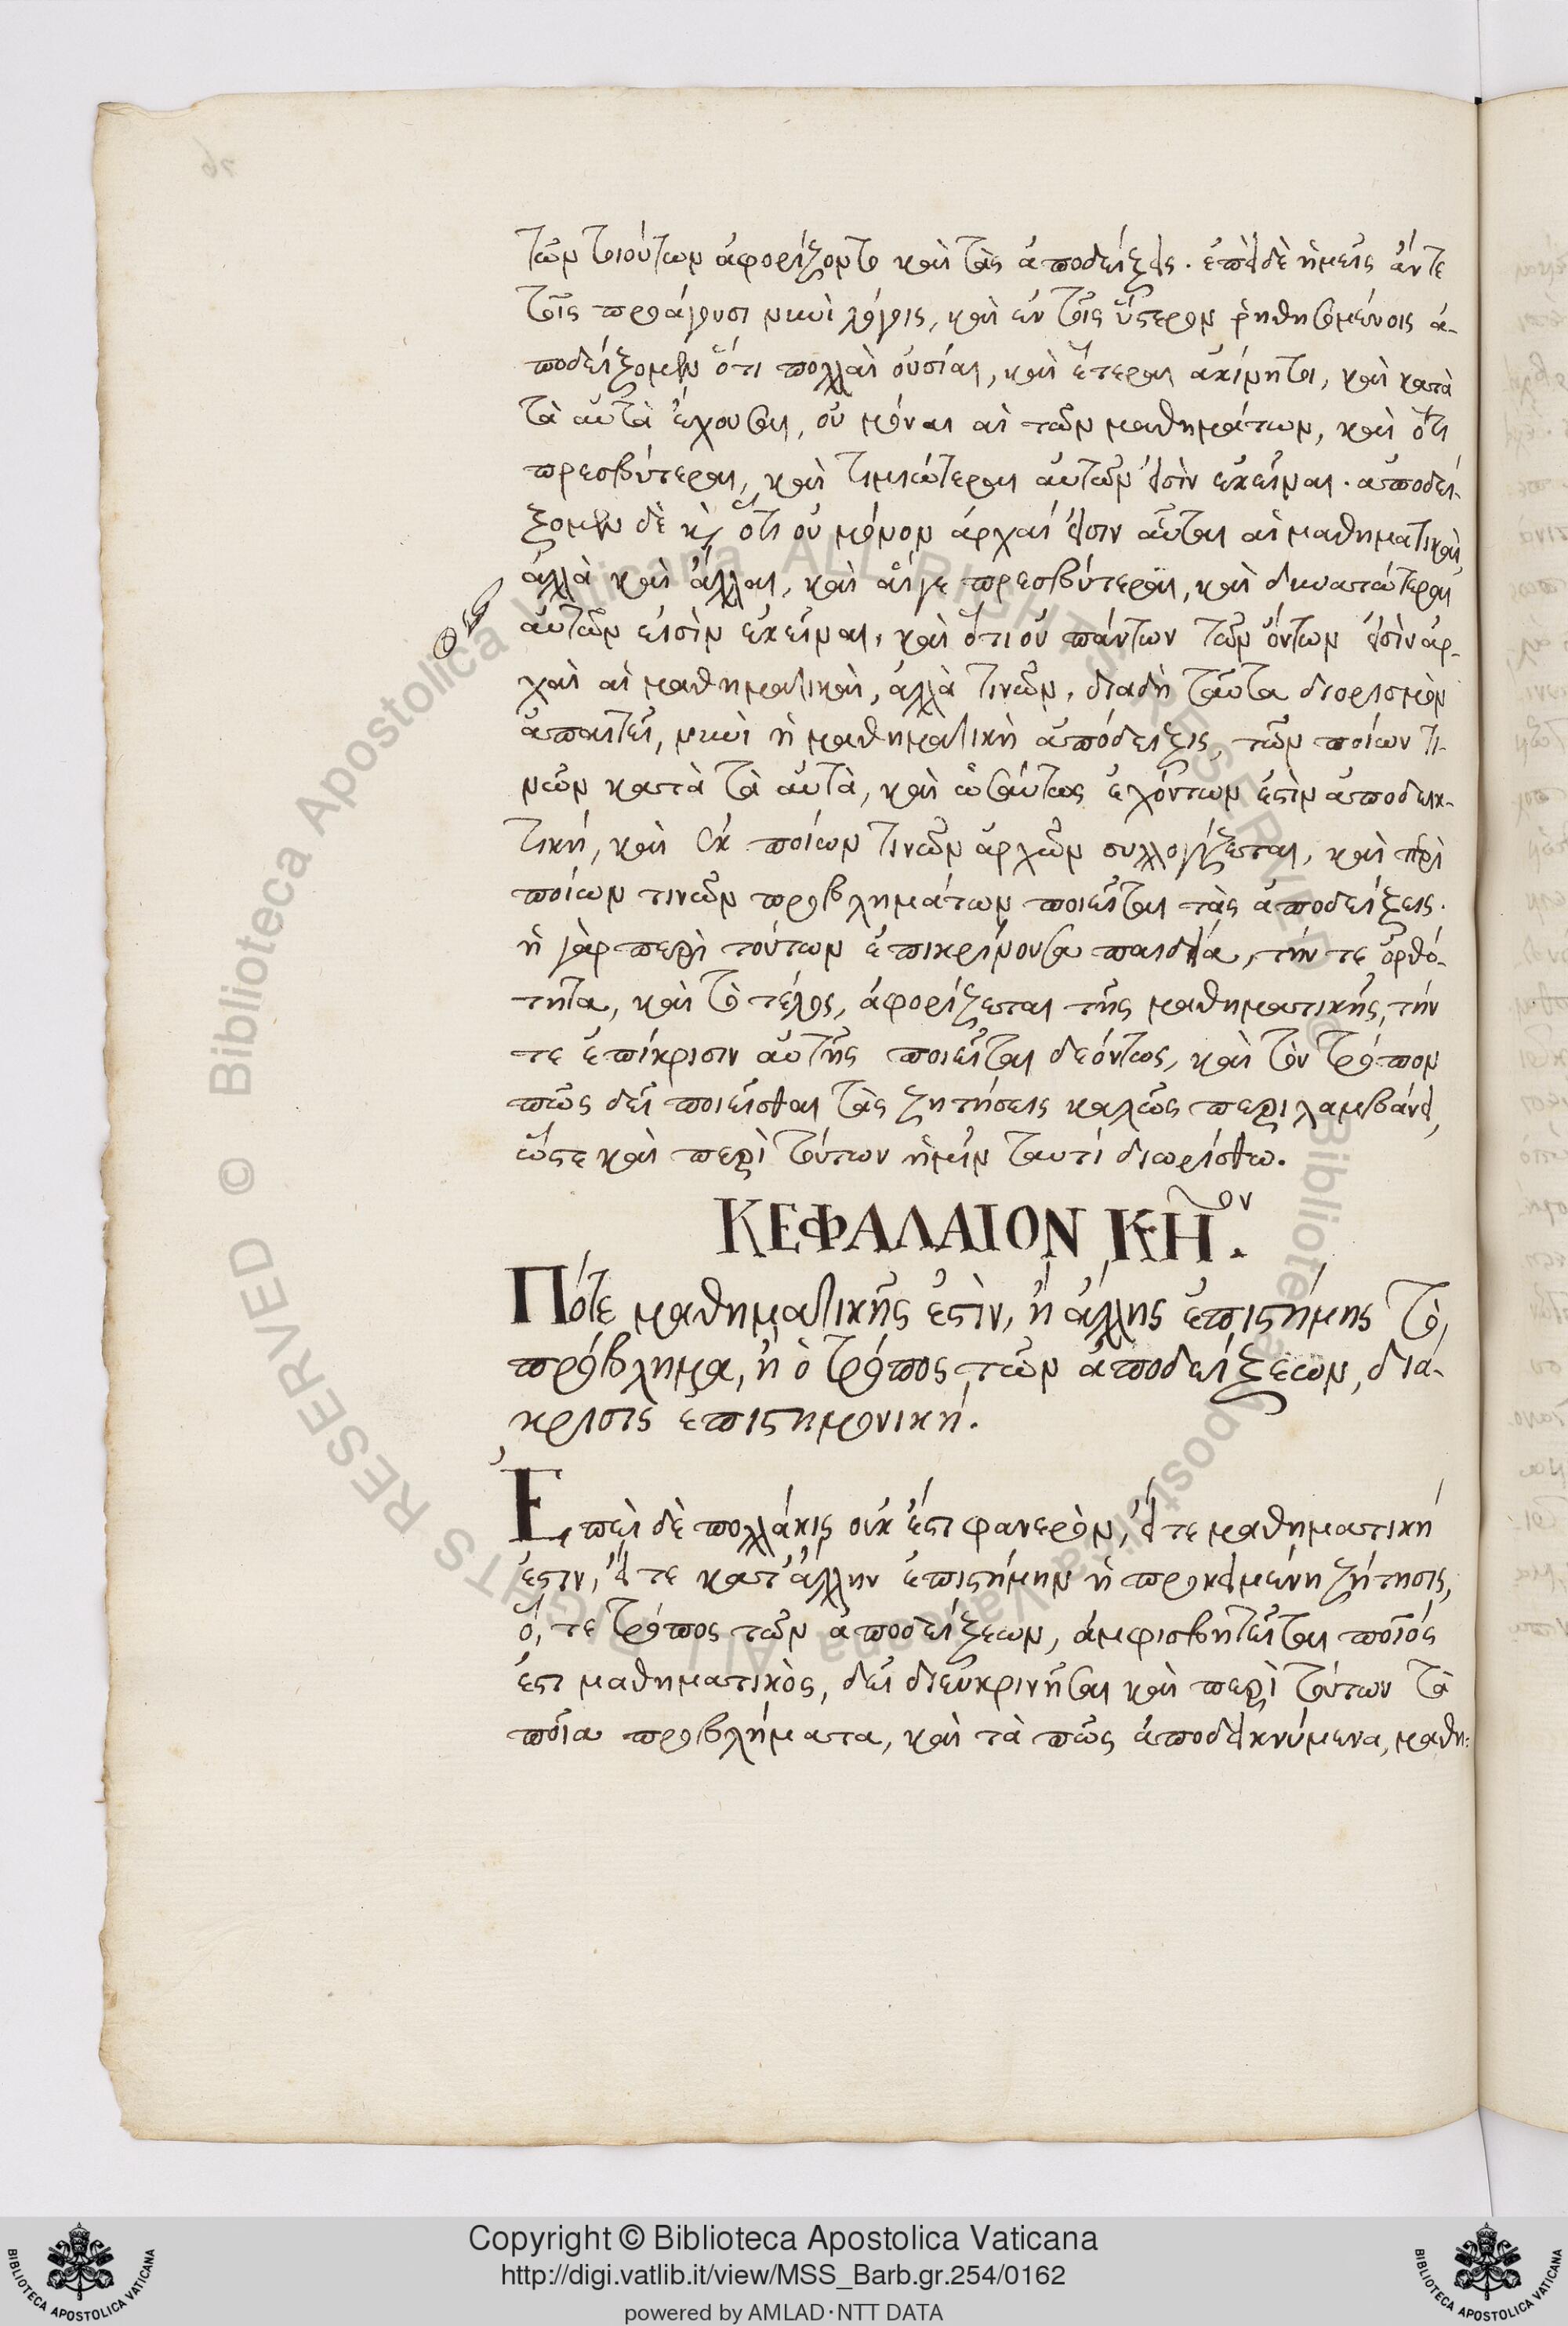 τῶν τοιούτων ἀφορίζοντο καὶ τὰς ἀποδείξεις. ἐπεὶ δὲ ἡμεῖς ἄν τε
τοῖς προάγουσι νυνὶ λόγοις, καὶ ἐν τοῖς ὕστερον ῥηθησομένοις ἀ-
ποδείξομεν ὅτι πολλαὶ οὐσίαι, καὶ ἕτεραι ἀκίνητοι, καὶ κατὰ
τὰ αὐτὰ ἔχουσαι, οὐ μόναι αἱ τῶν μαθημάτων, καὶ ὅτι
πρεσβύτεραι, καὶ τιμιώτεραι αὐτῶν εἰσὶν ἐκεῖναι. ἀποδεί-
ξομεν δὲ κὶ ὅτι οὐ μόνον ἀρχαί εἰσιν αὗται αἱ μαθηματικαὶ
ἀλλὰ καὶ ἄλλαι, καὶ αἵγε πρεσβύτεραι, καὶ δυνατώτεραι
αὐτῶν εἰσὶν ἐκεῖναι, καὶ ὅτι οὐ πάντων τῶν ὄντων εἰσὶν ἀρ-
χαὶ αἱ μαθηματικαὶ, ἀλλὰ τινῶν. διαδὴ ταῦτα διορισμὸν
ἀπαιτεῖ, νυνὶ ἡ μαθηματικὴ ἀπόδειξις, τῶν ποίων τι-
νῶν κατὰ τὰ αὐτὰ, καὶ ὡσαύτως ἐχόντων ἐστὶν ἀποδεικ-
τική, καὶ ἐκ ποίων τινῶν ἀρχῶν συλλογίζεται, καὶ περὶ
ποίων τινῶν προβλημάτων ποιεῖται τὰς ἀποδείξεις.
ἡ γὰρ περὶ τούτων ἐπικρίνουσα παιδεία, τήν τε ὀρθό-
τητα, καὶ τὸ τέλος, ἀφορίζεται τῆς μαθηματικῆς, τήν
τε ἐπίκρισιν αὐτῆς ποιεῖται δεόντως, καὶ τὸν τρόπον
πῶς δεῖ ποιεῖσθαι τὰς ζητήσεις καλῶς περιλαμβάνει,
ὥστε καὶ περὶ τούτων ἡμῖν ταυτί διωρίσθω.
ΚΕΦΑΛΑΙΟΝ ΚΗον.
Πότε μαθηματικῆς ἐστὶν, ἢ ἄλλης ἐπιστήμης τὸ
πρόβλημα, ἢ ὁ τρόπος τῶν ἀποδείξεων, διά-
κρισις ἐπιστημονική.
Ἐπεὶ δὲ πολλάκις οὐκ ἔστι φανερὸν, εἴ τε μαθηματική
ἐστιν, εἴ τε κατ' ἄλλην ἐπιστήμην ἡ προκειμένη ζήτησις,
ὅ, τε τρόπος τῶν ἀποδείξεων, ἀμφισβητεῖται ποῖός
ἐστι μαθηματικὸς, δεῖ διευκρινῆσαι καὶ περὶ τούτων τὰ
ποῖα προβλήματα, καὶ τὰ πῶς ἀποδεικνύμενα, μαθη-
Copyright © Biblioteca Apostolica Vaticana
http://digi.vatlib.it/view/MSS_Barb.gr.254/0162
powered by AMLAD·NTT DATA